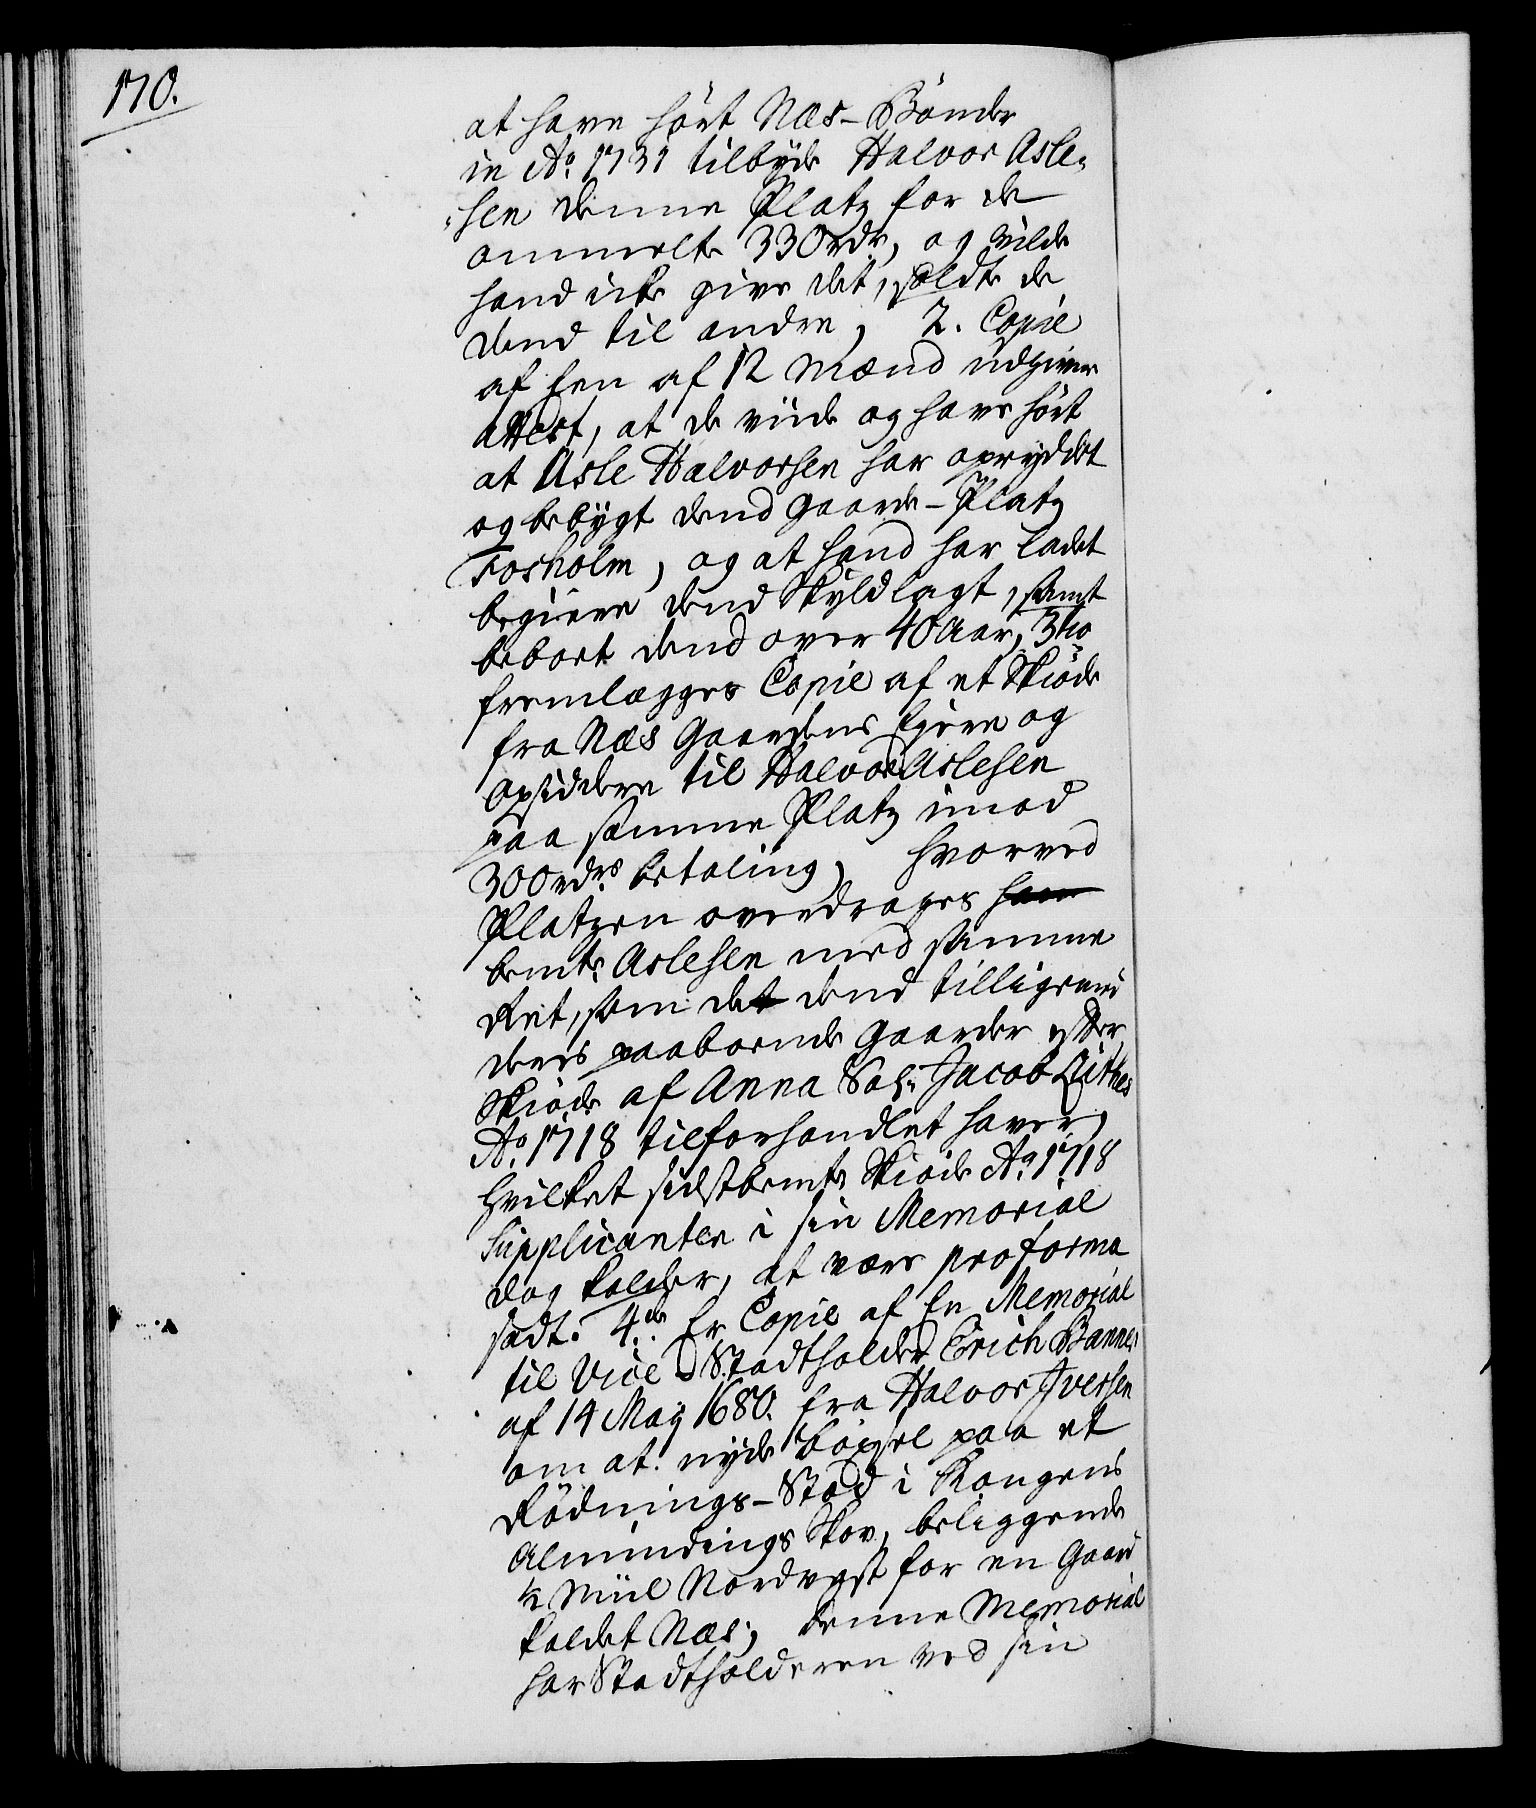 170.
at have hört Næs-Bönder
in Ao 1731 tilbyde Halvor Asle-
-sen denne Platz for de
ommelte 330rdr, og vilde
hand icke give det, soldte de
dend til andre, 2. Copie
af een af 12 Mænd udgiven
Attest, at de viide og have hört
at Asle Halvorsen har opryddet
og bebygt dend Gaarde-Platz
Fosholm, og at hand har ladet
begiere dend Skyldlagt, samt
beboet dend over 40 Aar, 3tio
fremlægges Copie af et Skiöde
fra Næs Gaardens Ejere og
Opsiddere til Halvor Aslesen
paa samme Platz imod
300rdrs betaling, hvorved
Platzen overdrages ham
bemte Aslesen med samme
Ret, som det dend tilligemed
deres paaboende Gaarder efter
Skiöde af Anna Sal. Jacob Lüthes
Ao 1718 tilforhandlet haver,
hvilket sidstbemte Skiöde Ao 1718
Supplicanten i sin Memorial
dog kalder, at være proforma
sadt. 4de Er Copie af En Memorial
til Vice-Stadtholder Erich Banner
af 14 Maij 1680. fra Halvor Iversen
om at nyde böxsel paa et
Rödnings-Stæd i Kongens
Almindings Skov, beliggende
½ Miil Nordvest for en Gaard
kaldet Næs, denne Memorial
har Stadtholderen ved sin